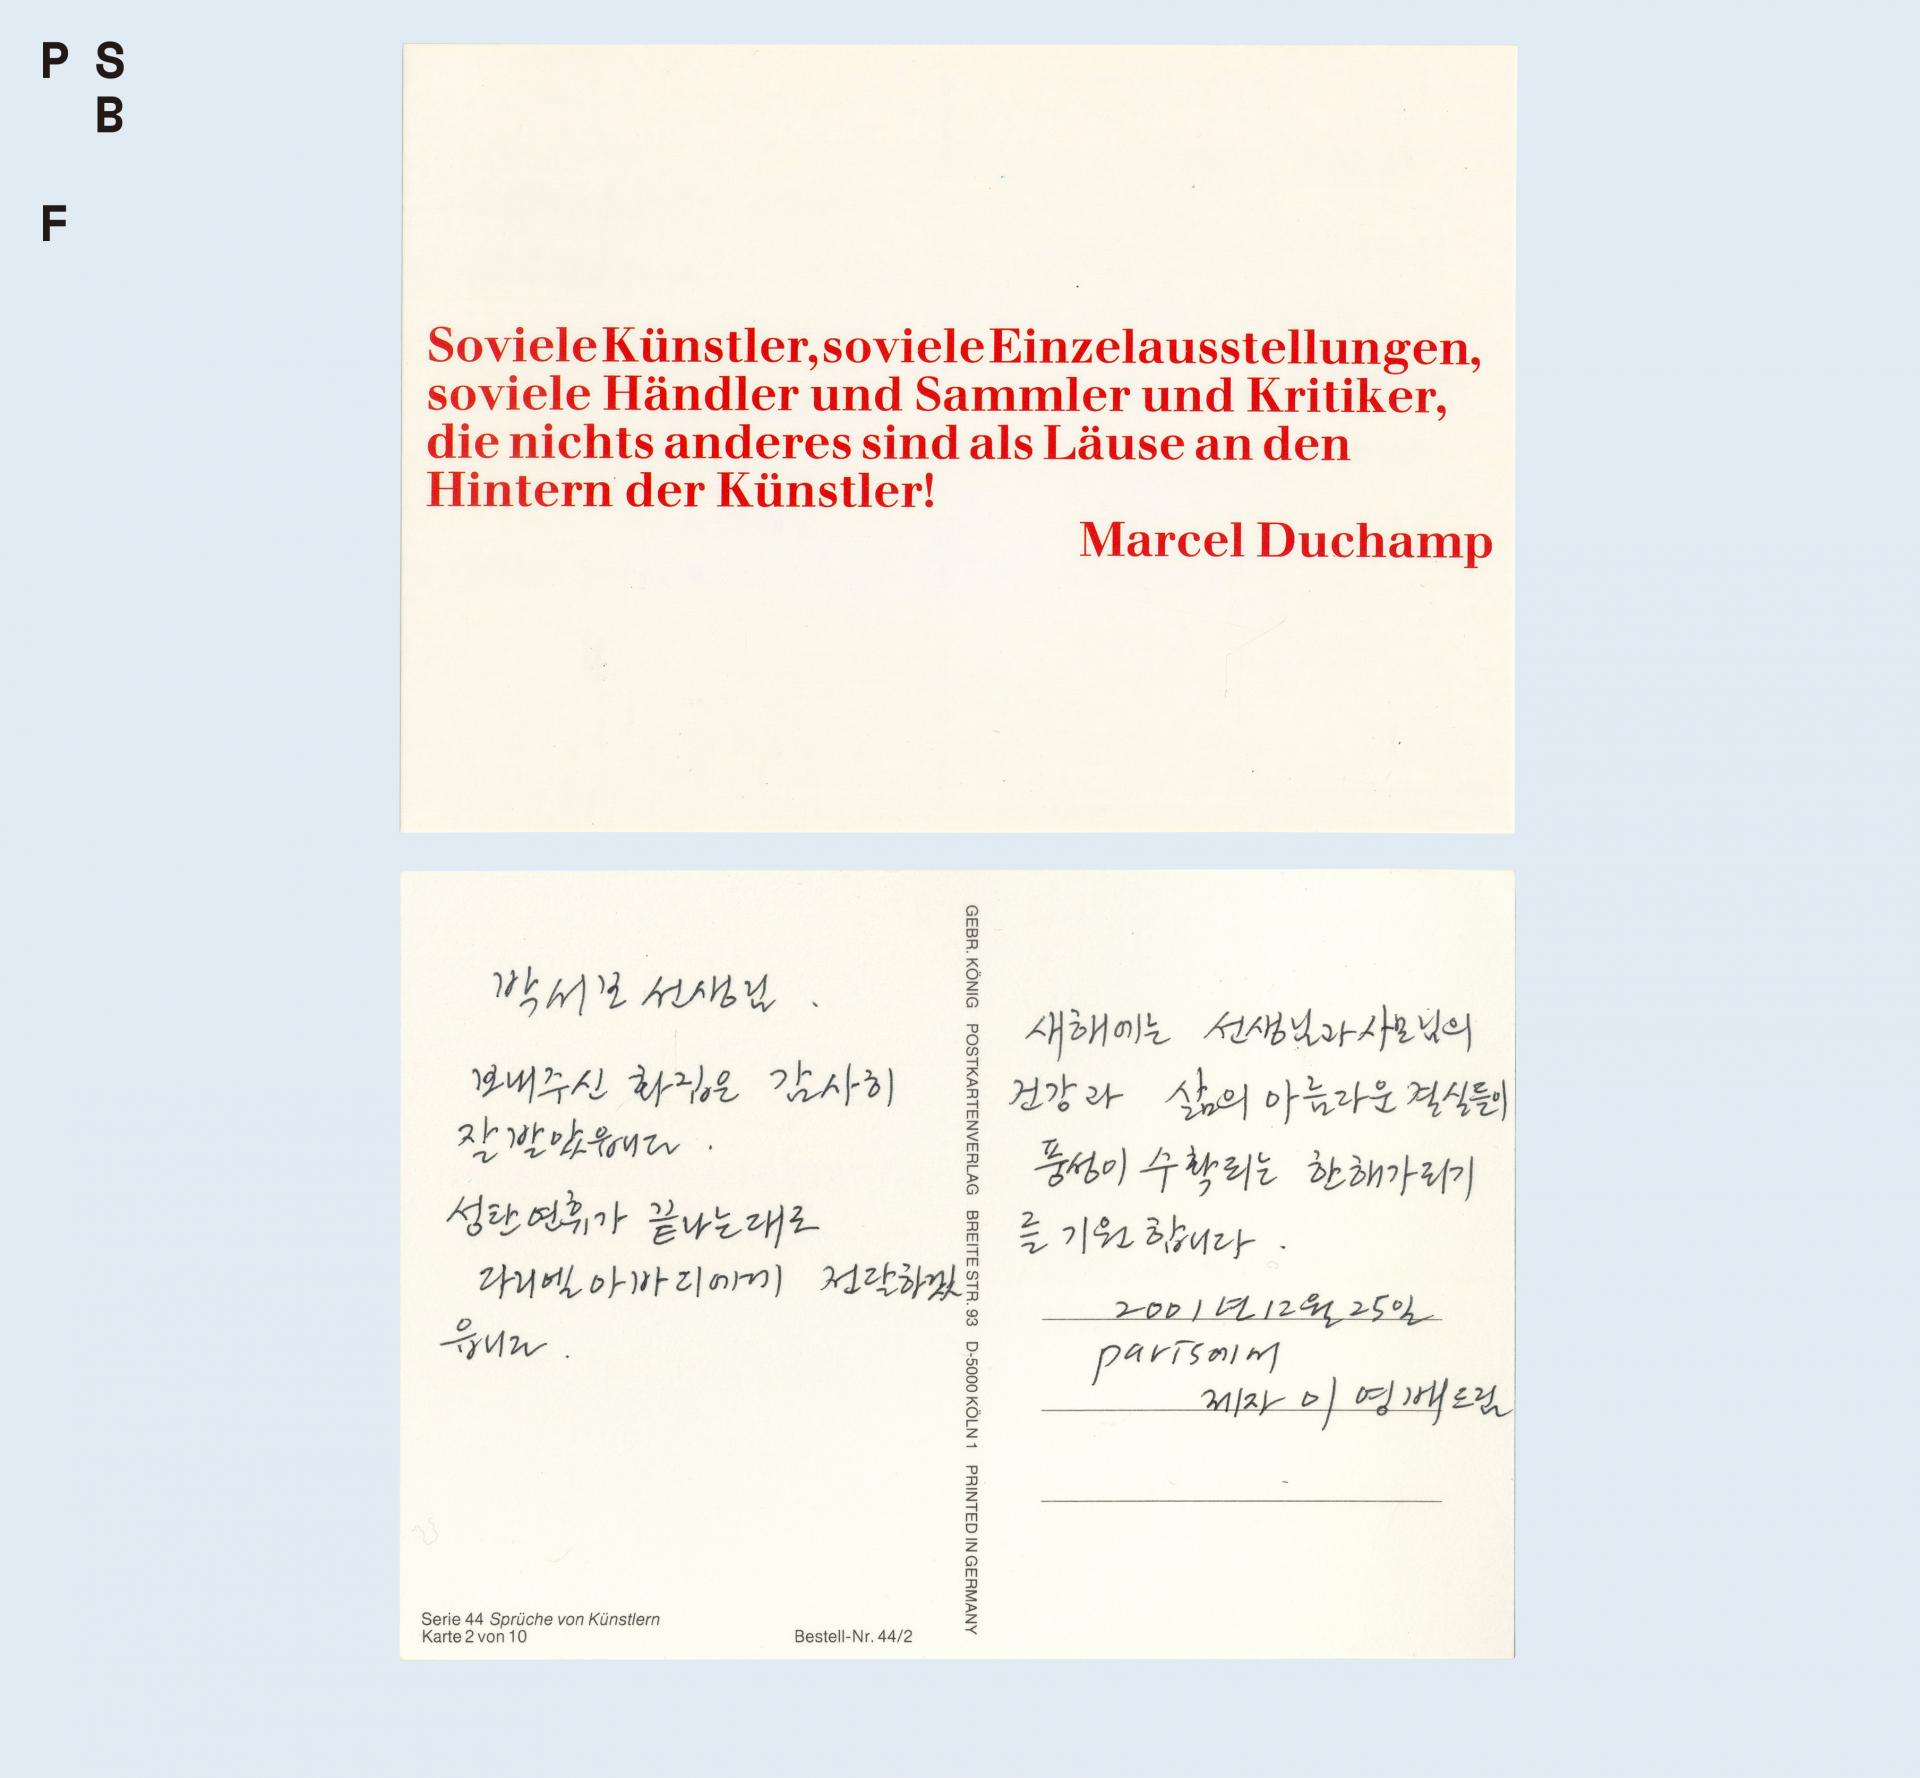 P S
B
F
Soviele Künstler, soviele Einzelausstellungen,
soviele Händler und Sammler und Kritiker,
die nichts anderes sind als Läuse an den
Hintern der Künstler!
Marcel Duchamp
박서보 선생님.
보내주신 화집은 감사히
잘 받았읍니다.
성탄연휴가 끝나는대로
다니엘 아바디에게 전달하겠
읍니다.
Serie 44 Sprüche von Künstlern
Karte 2 von 10
Bestell-Nr. 44/2
GEBR. KÖNIG POSTKARTENVERLAG BREITE STR. 93 D-5000 KÖLN 1 PRINTED IN GERMANY
새해에는 선생님과 사모님의
건강과 삶의 아름다운 결실들이
풍성이 수확되는 한해가 되기
를 기원합니다.
2001년 12월 25일
paris에서
제자 이영배 드림